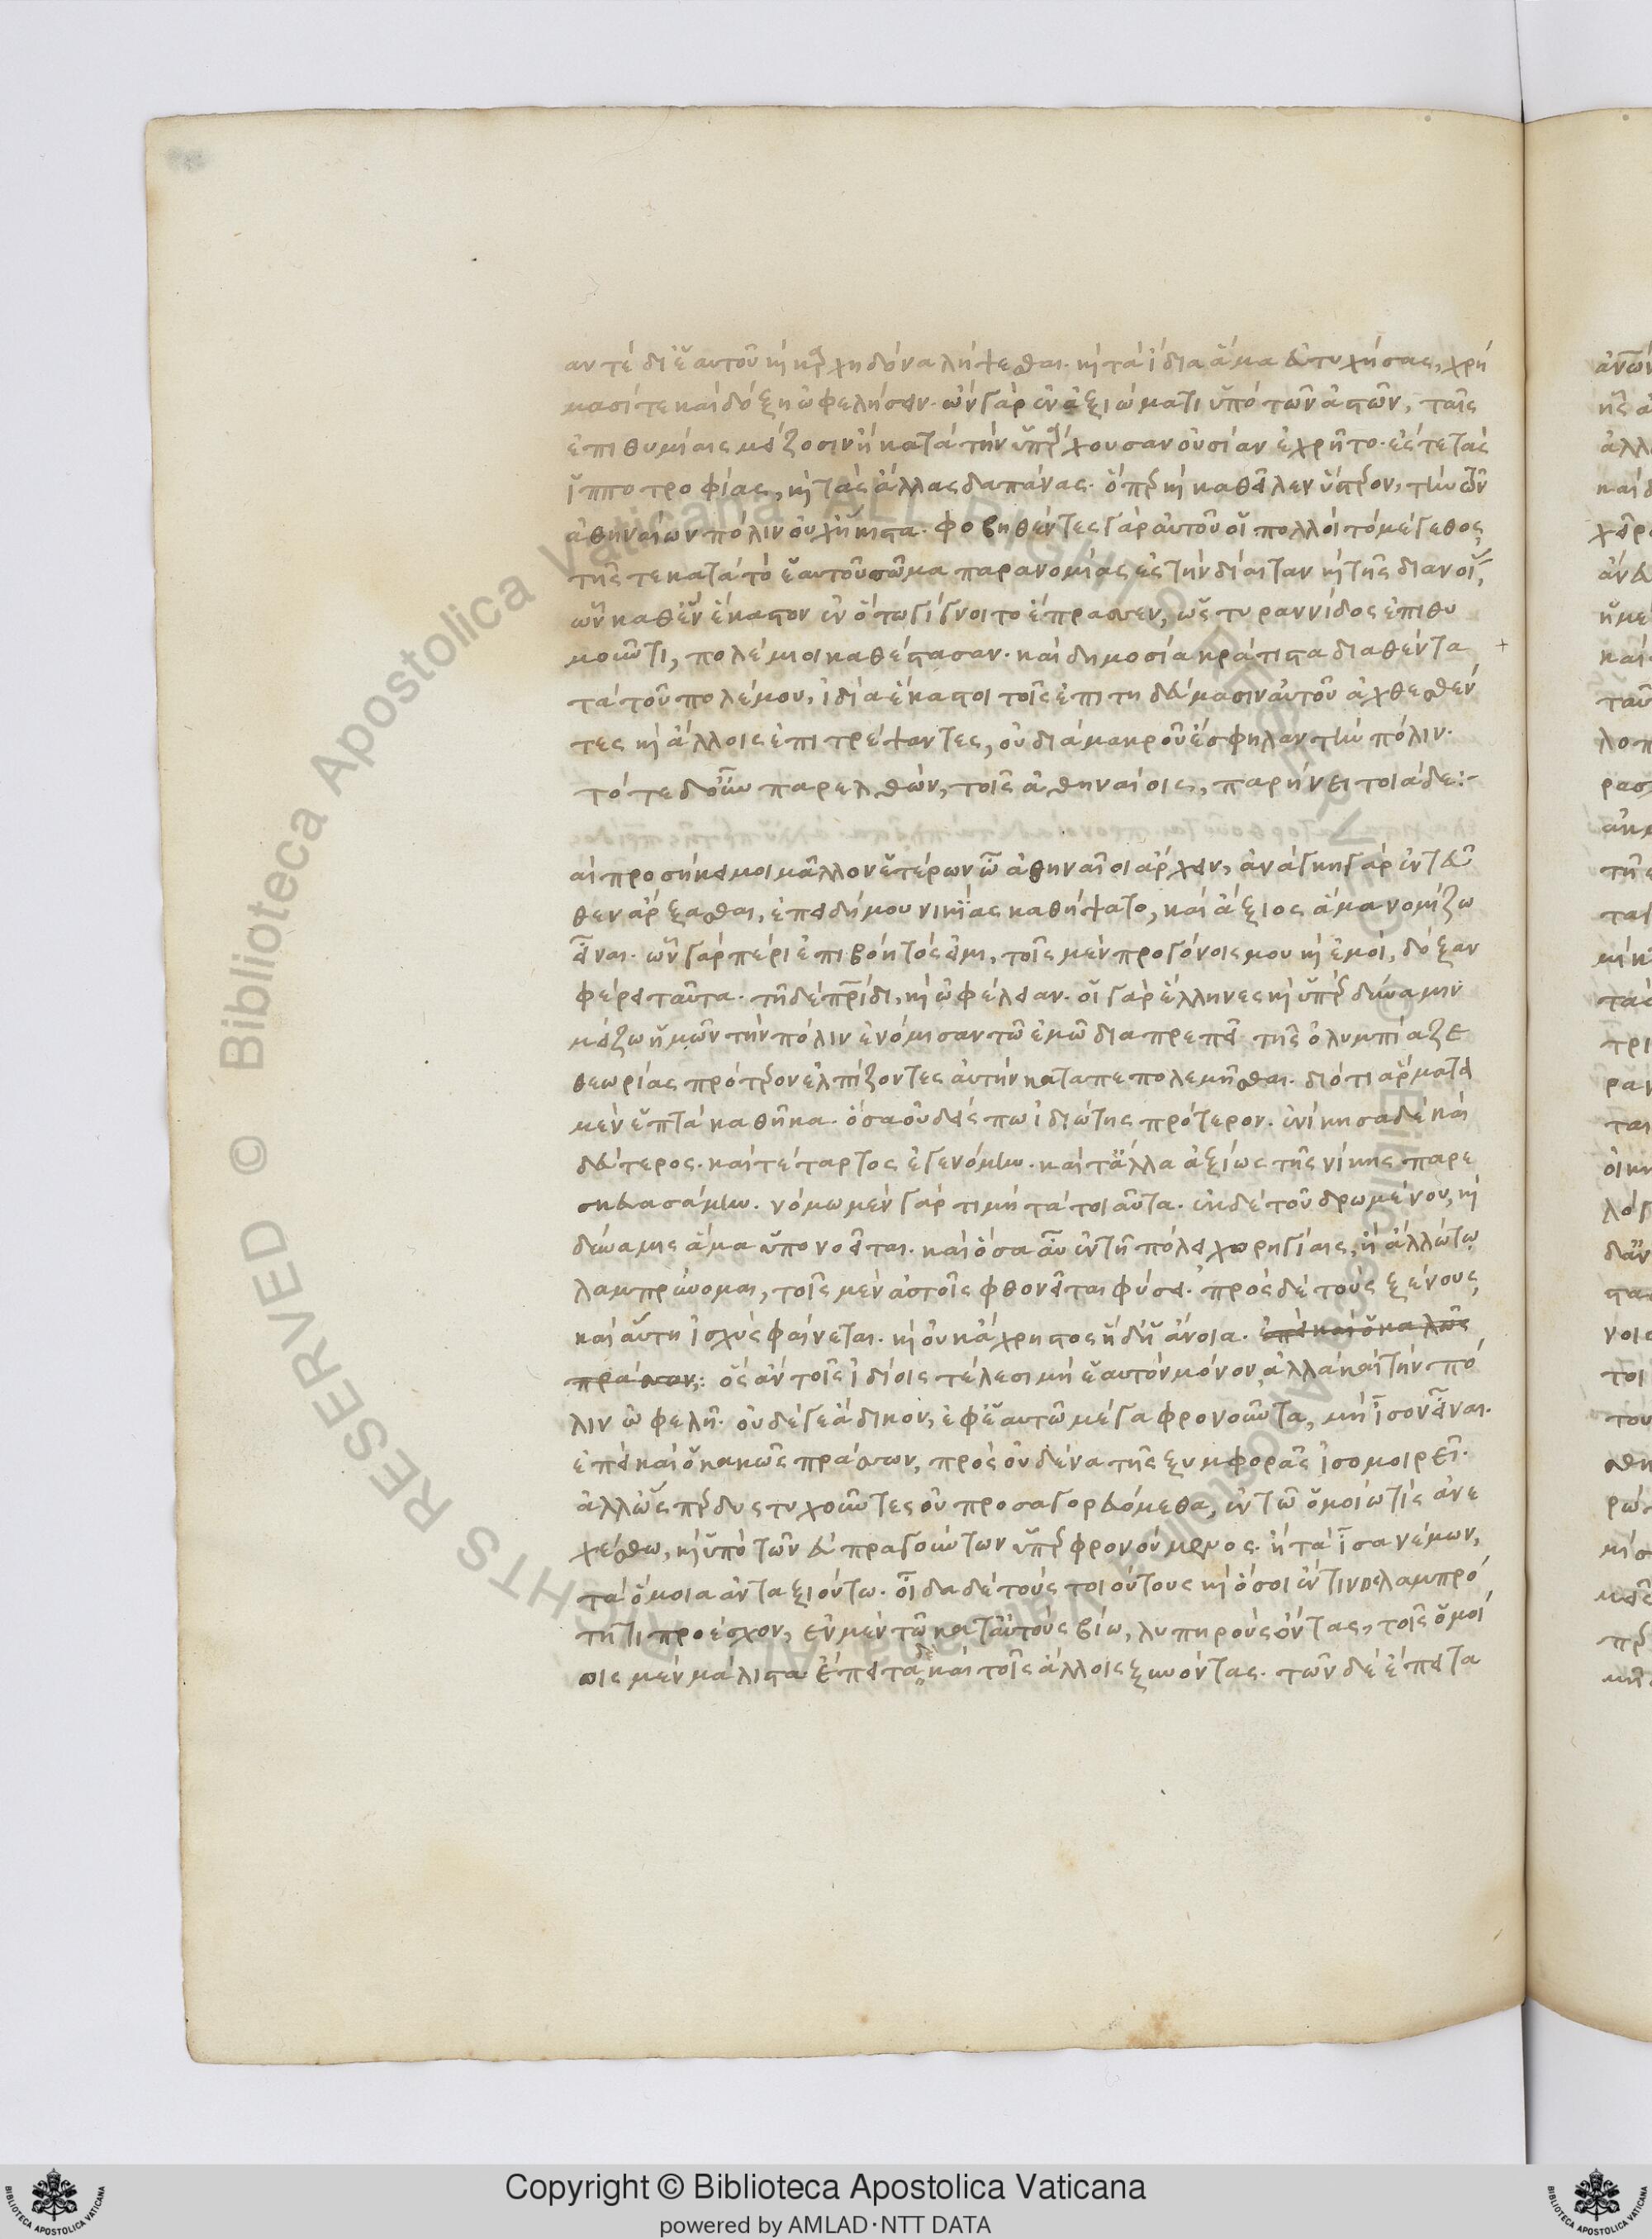 αν τέ δι ἑαυτοῦ καὶ καρχηδόνα λήψεσθαι. καὶ τὰ ἴδια ἅμα εὐτυχήσας, χρή
μασί τε καὶ δόξῃ ὠφελήσειν. ὢν γὰρ ἐν ἀξιώματι ὑπὸ τῶν ἀστῶν, ταῖς
ἐπιθυμίαις μείζοσιν ἢ κατὰ τὴν ὑπάρχουσαν οὐσίαν ἐχρῆτο. ἔς τε τὰς
ἱπποτροφίας, καὶ τὰς ἄλλας δαπάνας. ὅπερ καὶ καθεῖλεν ὕστερον, τὴν τῶν
ἀθηναίων πόλιν οὐχ ἥκιστα. φοβηθέντες γὰρ αὐτοῦ οἱ πολλοὶ τὸ μέγεθος
τῆς τε κατὰ τὸ ἑαυτοῦ σῶμα παρανομίας ἐς τὴν δίαιταν καὶ τῆς διανοίας
ὧν καθ ἓν ἕκαστον ἐν ὅτω γίγνοιτο ἔπρασσεν, ὡς τυραννίδος ἐπιθυ
μοῦντι, πολέμιοι καθέστασαν. καὶ δημοσία κράτιστα διαθέντα
τὰ τοῦ πολέμου, ἰδία ἕκαστοι τοῖς ἐπιτηδεύμασιν αὐτοῦ ἀχθεσθέν
τες καὶ ἄλλοις ἐπιτρέψαντες, οὐ διὰ μακροῦ ἔσφηλαν τὴν πόλιν.
τότε δ οὖν παρελθών, τοῖς ἀθηναίοις, παρήνει τοιάδε:-
αὶ προσήκει μοι μᾶλλον ἑτέρων ὦ ἀθηναῖοι ἄρχειν, ἀνάγκη γὰρ ἐντεῦ
θεν ἄρξασθαι, ἐπειδή μου νικίας καθήψατο, καὶ ἄξιος ἅμα νομίζω
εἶναι. ὧν γὰρ πέρι ἐπιβόητός εἰμι, τοῖς μὲν προγόνοις μου καὶ ἐμοί, δόξαν
φέρει ταῦτα. τῇ δὲ πατρίδι, καὶ ὠφέλειαν. οἱ γὰρ ἕλληνες καὶ ὑπὲρ δύναμιν
μείζω ἡμῶν τὴν πόλιν ἐνόμισαν τῶ ἐμῶ διαπρεπεῖ τῆς ὀλυμπίαζε
θεωρίας πρότερον ἐλπίζοντες αὐτὴν καταπεπολεμῆσθαι. διότι ἅρματα
μὲν ἑπτὰ καθῆκα. ὅσα οὐδείς πω ἰδιώτης πρότερον. ἐνίκησα δὲ καὶ
δεύτερος. καὶ τέταρτος ἐγενόμην. καὶ τἄλλα ἀξίως τῆς νίκης παρε
σκευασάμην. νόμω μὲν γὰρ τιμὴ τὰ τοιαῦτα. ἐκ δὲ τοῦ δρωμένου, καὶ
δύναμις ἅμα ὑπονοεῖται. καὶ ὅσα αὖ ἐν τῇ πόλει χορηγίαις, ἢ ἄλλω τω
λαμπρύνομαι, τοῖς μὲν ἀστοῖς φθονεῖται φύσει. πρὸς δὲ τοὺς ξένους
καὶ αὕτη ἰσχὺς φαίνεται. καὶ οὐκ ἄχρηστος ἥδ ἡ ἄνοια. ἐπεὶ καὶ ὁ καλῶς
πράσσων: ὃς ἂν τοῖς ἰδίοις τέλεσι μὴ ἑαυτὸν μόνον ἀλλὰ καὶ τὴν πό
λιν ὠφελῇ. οὐδέ γε ἄδικον, ἐφ ἑαυτῶ μέγα φρονοῦντα, μὴ ἴσον εἶναι.
ἐπεὶ καὶ ὁ κακῶς πράσσων, πρὸς οὐδένα τῆς ξυμφορᾶς ἰσομοιρεῖ.
ἀλλ ὥσπερ δυστυχοῦντες οὐ προσαγορευόμεθα, ἐν τῶ ὁμοίω τίς ἀνε
χέσθω, καὶ ὑπὸ τῶν εὐπραγούντων ὑπερφρονούμενος. ἢ τὰ ἴσα νέμων,
τὰ ὅμοια ἀνταξιούτω. οἶδα δὲ τοὺς τοιούτους καὶ ὅσοι ἔν τινος λαμπρό
τητι προέσχον, ἐν μὲν τῶ κατ αὐτοὺς βίω, λυπηροὺς ὄντας, τοῖς ὁμοί
οις μὲν μάλιστα ἔπειτα δὲ καὶ τοῖς ἄλλοις ξυνόντας. τῶν δὲ ἔπειτα
Copyright © Biblioteca Apostolica Vaticana
powered by AMLAD·NTT DATA